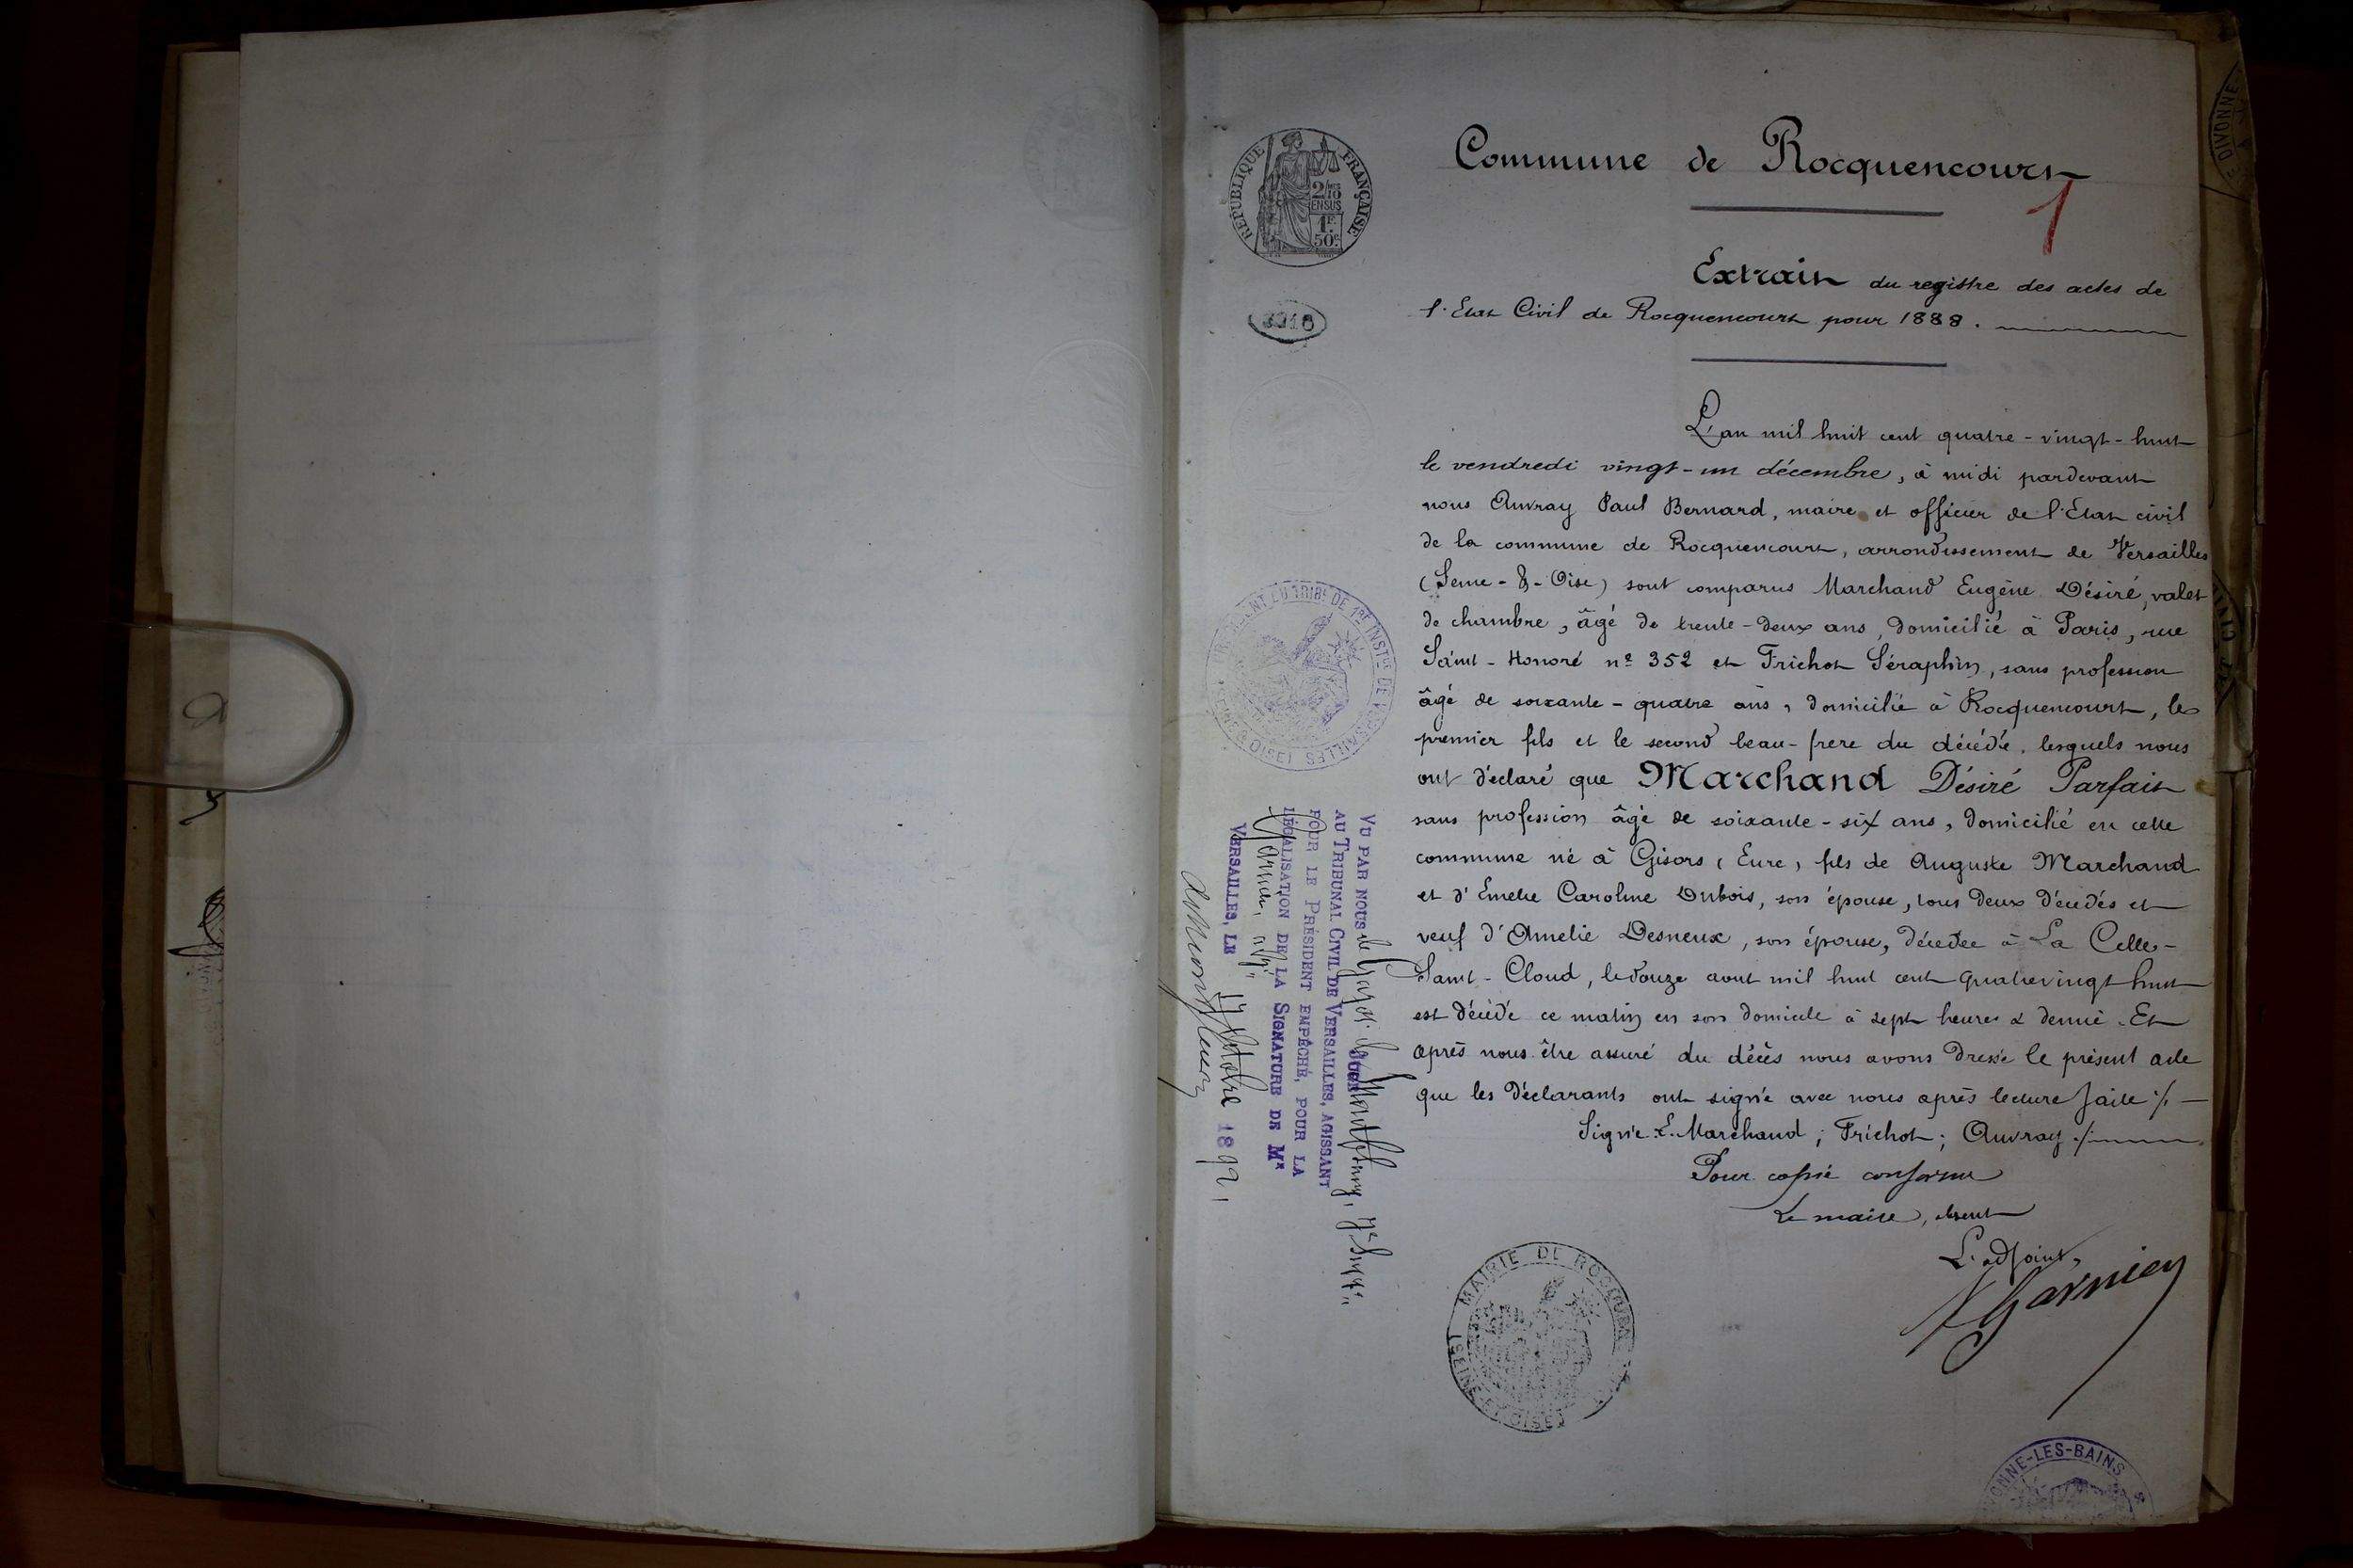 Commune de Rocquencourt
1
RÉPUBLIQUE FRANÇAISE
2/10
EN SUS
1F
50c
3916
Extrait du registre des actes de
l'Etat Civil de Rocquencourt pour 1888.
L'an mil huit cent quatre-vingt-huit
le vendredi vingt-un décembre, à midi pardevant
nous Auvray Paul Bernard, maire et officier de l'Etat civil
de la commune de Rocquencourt, arrondissement de Versailles
(Seine-&-Oise) sont comparus Marchand Eugène Désiré, valet
de chambre, âgé de trente-deux ans, domicilié à Paris, rue
Saint-Honoré nº 352 et Frichot Séraphin, sans profession
âgé de soixante-quatre ans, domicilié à Rocquencourt, le
premier fils et le second beau-frère du décédé, lesquels nous
ont déclaré que Marchand Désiré Parfait
sans profession âgé de soixante-six ans, domicilié en cette
commune né à Gisors (Eure) fils de Auguste Marchand
et d'Emelie Caroline Dubois, son épouse, tous deux décédés et
veuf d'Amelie Desneux, son épouse, décédée à La Celle-
Saint-Cloud, le douze aout mil huit cent quatrevingt huit
est décédé ce matin en son domicile à sept heures & demie. Et
après nous être assuré du décès nous avons dressé le présent acte
que les déclarants ont signé avec nous après lecture faite ./. —
Signé: E. Marchand; Frichot; Auvray ./.
Pour copie conforme
Le maire, absent
L'adjoint,
Garnier
VU PAR NOUS de JUGE
AU TRIBUNAL CIVIL DE VERSAILLES, AGISSANT
POUR LE PRÉSIDENT EMPÊCHÉ, POUR LA
LÉGALISATION DE LA SIGNATURE DE Mr
Garnier, adjt
VERSAILLES, LE 17 octobre 1892
PRÉSIDENT DU TRIBL DE 1RE INSTCE DE VERSAILLES (SEINE & OISE)
MAIRIE DE ROCQUENCOURT
(SEINE-ET-OISE)
DIVONNE-LES-BAINS
DIVONNE